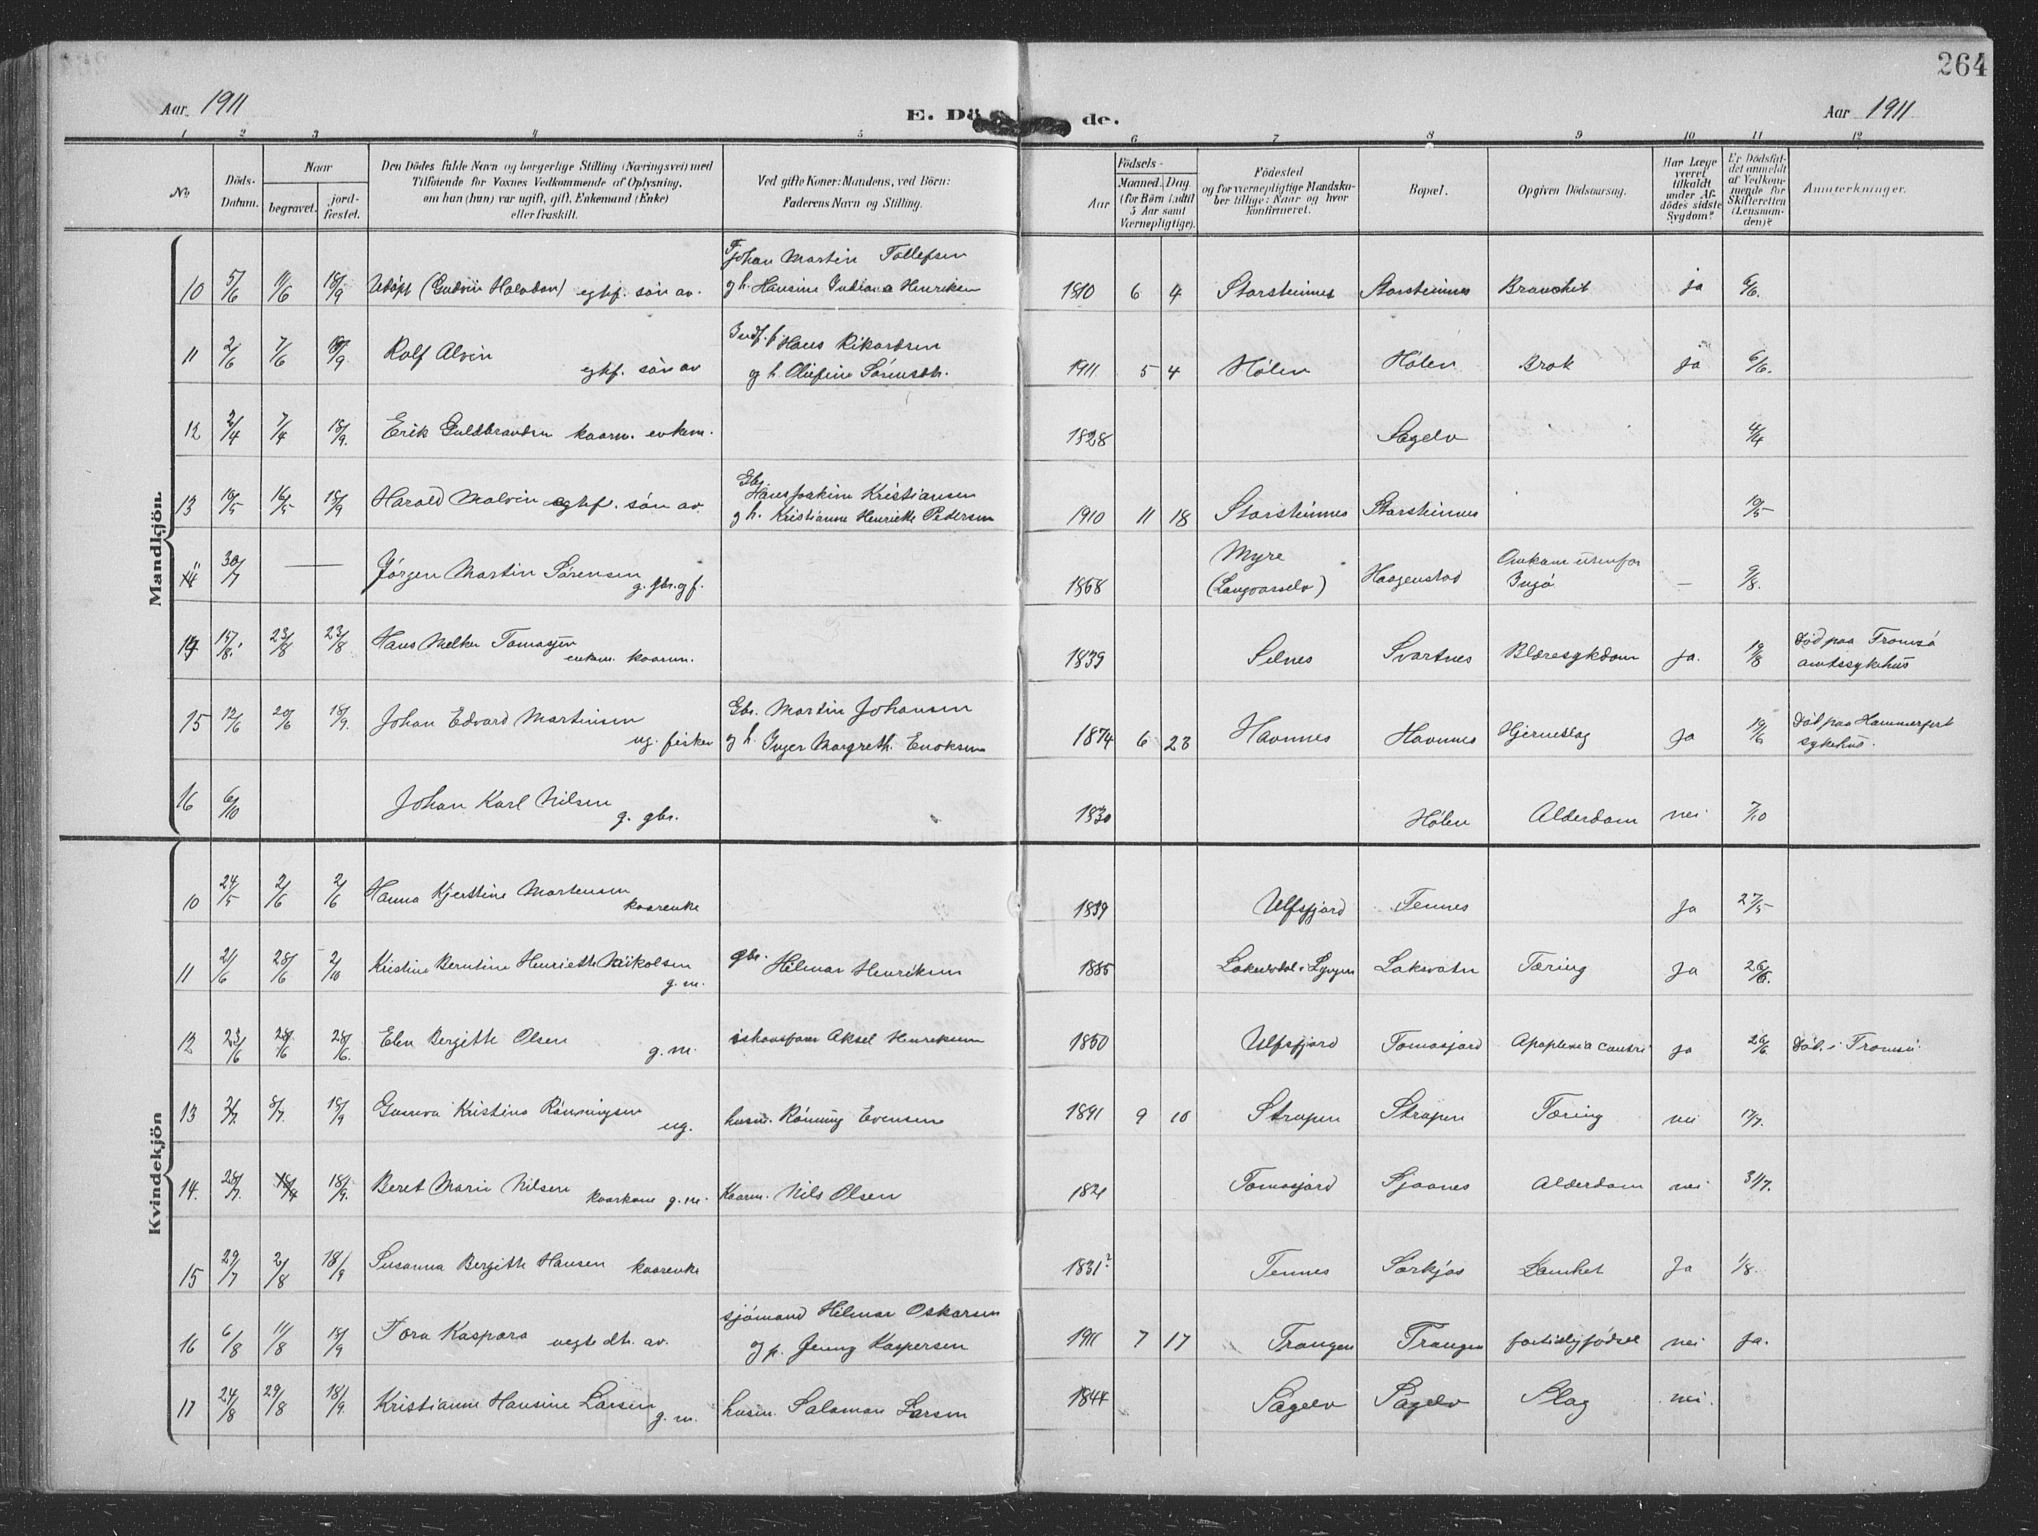 264
Aar 1911
E. Dö de.
Aar 1911
1 2 3 4 5 6 7 8 9 10 11 12
No.
Döds-Datum.
Naar
begravet.
jordfæstet.
Den Dödes fulde Navn og borgerlige Stilling (Næringsvei) med
Tilföiende for Voxnes Vedkommende af Oplysning,
om han (hun) var ugift, gift, Enkemand (Enke)
eller fraskilt.
Ved gifte Koner: Mandens, ved Börn:
Faderens Navn og Stilling.
Födsels-
Aar
Maaned. Dag
(for Börn indtil
5 Aar samt
Værnepligtige).
Födested
og for værnepligtige Mandskaber
tillige: Naar og hvor
konfirmeret.
Bopæl.
Opgiven Dödsaarsag.
Har Læge
været
tilkaldt
under Afdödes
sidste
Sygdom?
Er Dödsfaldet
anmeldt
af Vedkommende
for
Skifteretten
(Lensmanden)?
Anmærkninger.
Mandkjön.
10 5/6 11/6 18/9 Udöpt (Gudvin Halvdan) egtef. sön av. Johan Martin Tollefsen
og h. Hansine Indiana Henriksen 1910 6 4 Storsteinnes Storsteinnes Bronchit ja 6/6.
11 2/6 7/6 18/9 Rolf Alvin egtef. sön av Hans Rikardsen
og h. Olufine Sörensdtr. 1911 5 4 Hölen Hölen Brok ja 6/6.
12 2/4 7/4 18/9. Erik Guldbrandsen kaarm. enkem. 1828 Sagelv 4/4
13 10/5 16/5 18/9 Harald Malvin egtef. sön av Gbr. Hans Joakim Kristiansen
og h. Kristianne Henriette Pedersen 1910 11 18 Storsteinnes Storsteinnes 10/5
14 30/7 — Jörgen Martin Sörensen g. gbr. g f. 1868 Myre
(Langvasselv) Haagenstad Omkom utenfor
Ingö — 9/8.
14 15/8. 23/8 23/8 Hans Melker Tomasjen
enkem. kaarm. 1839 Selnes Svartnes Blæresykdom ja. 19/8 Död paa Tromsö
amtssykehus
15 12/6 20/6 18/9. Johan Edvard Martinsen
ug. fisker Gbr. Martin Johansen
og h. Inger Margreth. Enoksen 1874 6 23 Havnnes Havnnes Hjerneslag ja 19/6 Död paa Hammerfest
sykehus.
16 6/10 Johan Karl Nilsen
g. gbr. 1830 Hölen Alderdom nei 7/10
Kvindekjön
10 24/5 2/6 2/6 Hanna Kjerstine Mortensen
kaarenke 1839 Ulfsfjord Tennes ja 27/5
11 21/6 28/6 2/10 Kristine Berntine Henriette Nikolsen
g. m. gbr. Hilmar Henriksen 1885 Laksvatn Tæring ja 26/6.
12 23/6 28/6 28/6. Elen Bergitte Olsen g. m. Aksel Henriksen 1850 Ulfsfjord Tomasjord Apoplexia ja 26/6 Död. i Tromsö.
13 2/7. 8/7. 18/9 Gunneva Kristine Rönningsen
ug. husm. Rönning Evensen 1891 9 10 Strupen Strupen Tæring nei 17/7.
14. 28/7. 18/9. Beret Marie Nilsen kaarkone g. m. Kaarm. Nils Olsen 1821 Tomasjord Sjaanes Alderdom nei 31/7.
15 29/7 2/8 18/9 Susanna Bergitte Hansen kaarenke 1831? Tennes Sørkjos Lamhet ja 1/8.
16 6/8 11/8 18/9 Tora Kaspara uegte dtr. av. sjömand Hilmar Oskarsen
og p. Jenny Kaspersen 1911 7 17 Trangen Trangen fortidlig födsel nei ja.
17 24/8 29/8 18/9. Kristianne Hansine Larsen
g. m. husm. Salamon Larsen 1844 Sagelv Sagelv Slag nei.